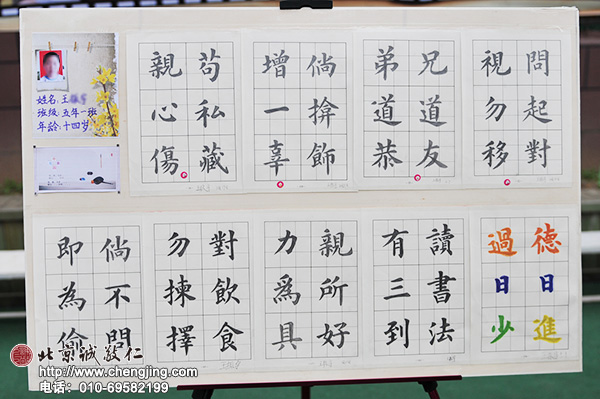 姓名:王
班级:五年一班
年龄:十四岁
苟私藏
親心傷
倘揜飾
增一辜
兄道友
弟道恭
問起對
視勿移
倘不問
即為偷
對飲食
勿揀擇
親所好
力爲具
讀書法
有三到
德日進
過日少
北京诚敬仁
http://www.chengjing.com
电话：010-69582199